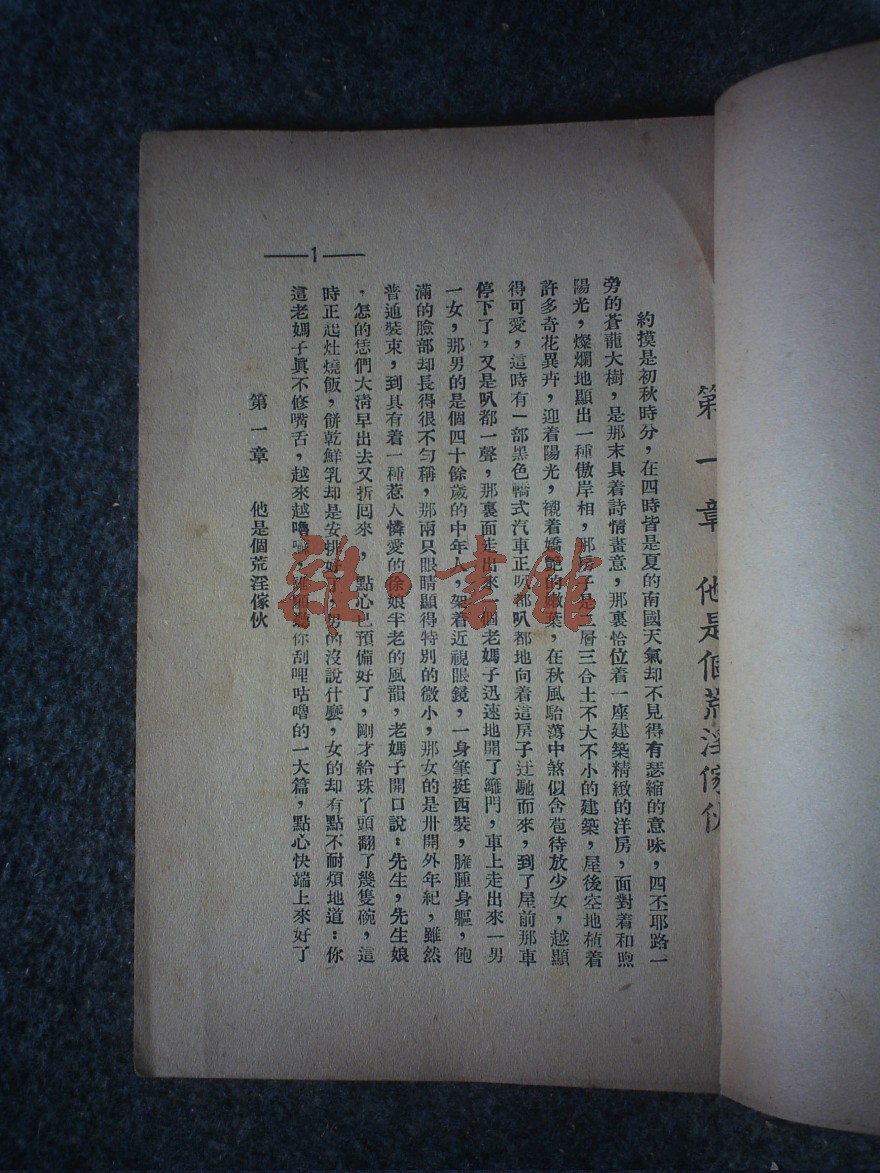 第一章 他是個荒淫傢伙
約摸是初秋時分，在四時皆是夏的南國天氣却不見得有瑟縮的意味，四丕耶路一
旁的蒼龍大樹，是那末具着詩情畫意，那裏恰位着一座建築精緻的洋房，面對着和煦
陽光，燦爛地顯出一種傲岸相，那房子是三層三合土不大不小的建築，屋後空地植着
許多奇花異卉，迎着陽光，襯着嬌艷的嫩葉，在秋風駘蕩中煞似含苞待放少女，越顯
得可愛，這時有一部黑色轎式汽車正叭都叭都地向着這房子迂馳而來，到了屋前那車
停下了，又是叭都一聲，那裏面走出來一個老媽子迅速地開了離門，車上走出來一男
一女，那男的是個四十餘歲的中年人，架着近視眼鏡，一身筆挺西裝，臃腫身軀，飽
滿的臉部却長得很不勻稱，那兩只眼睛顯得特別的微小，那女的是卅開外年紀，雖然
普通裝束，到具有着一種惹人憐愛的徐娘半老的風韻，老媽子開口說：先生，先生娘
，怎的恁們大清早出去又折囘來，點心已預備好了，剛才給珠丫頭翻了幾隻碗，這
時正起灶燒飯，餅乾鮮乳却是安排好了，男的沒說什麼，女的却有點不耐煩地道：你
這老媽子眞不修嘴舌，越來越嚕囌，誰願聽你刮哩咕嚕的一大篇，點心快端上來好了
第一章 他是個荒淫傢伙
1
雜·書館